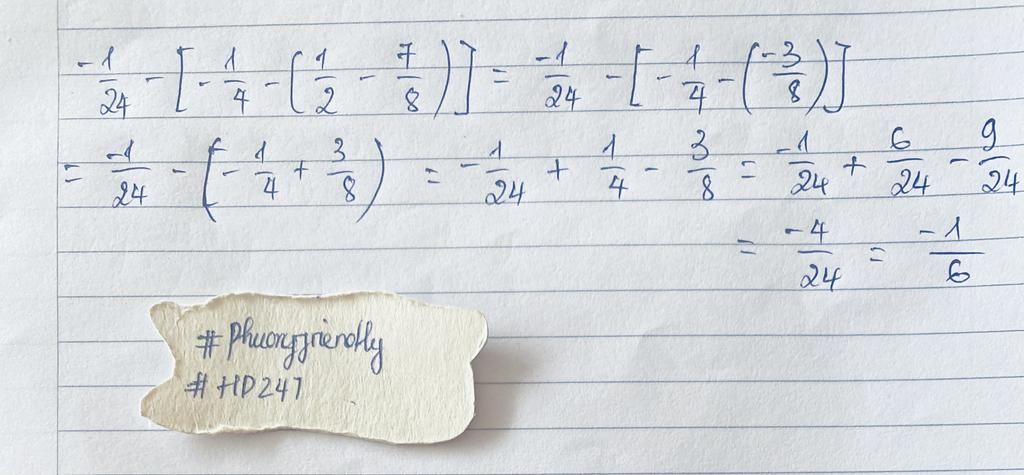 -1/24 - [-1/4 - (1/2 - 7/8)] = -1/24 - [-1/4 - (-3/8)]
= -1/24 - (-1/4 + 3/8) = -1/24 + 1/4 - 3/8 = -1/24 + 6/24 - 9/24
= -4/24 = -1/6
# Phuongfriendly
# HD247